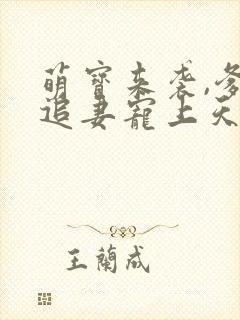 萌寶来袭,爹
追妻寵上天
王蘭成